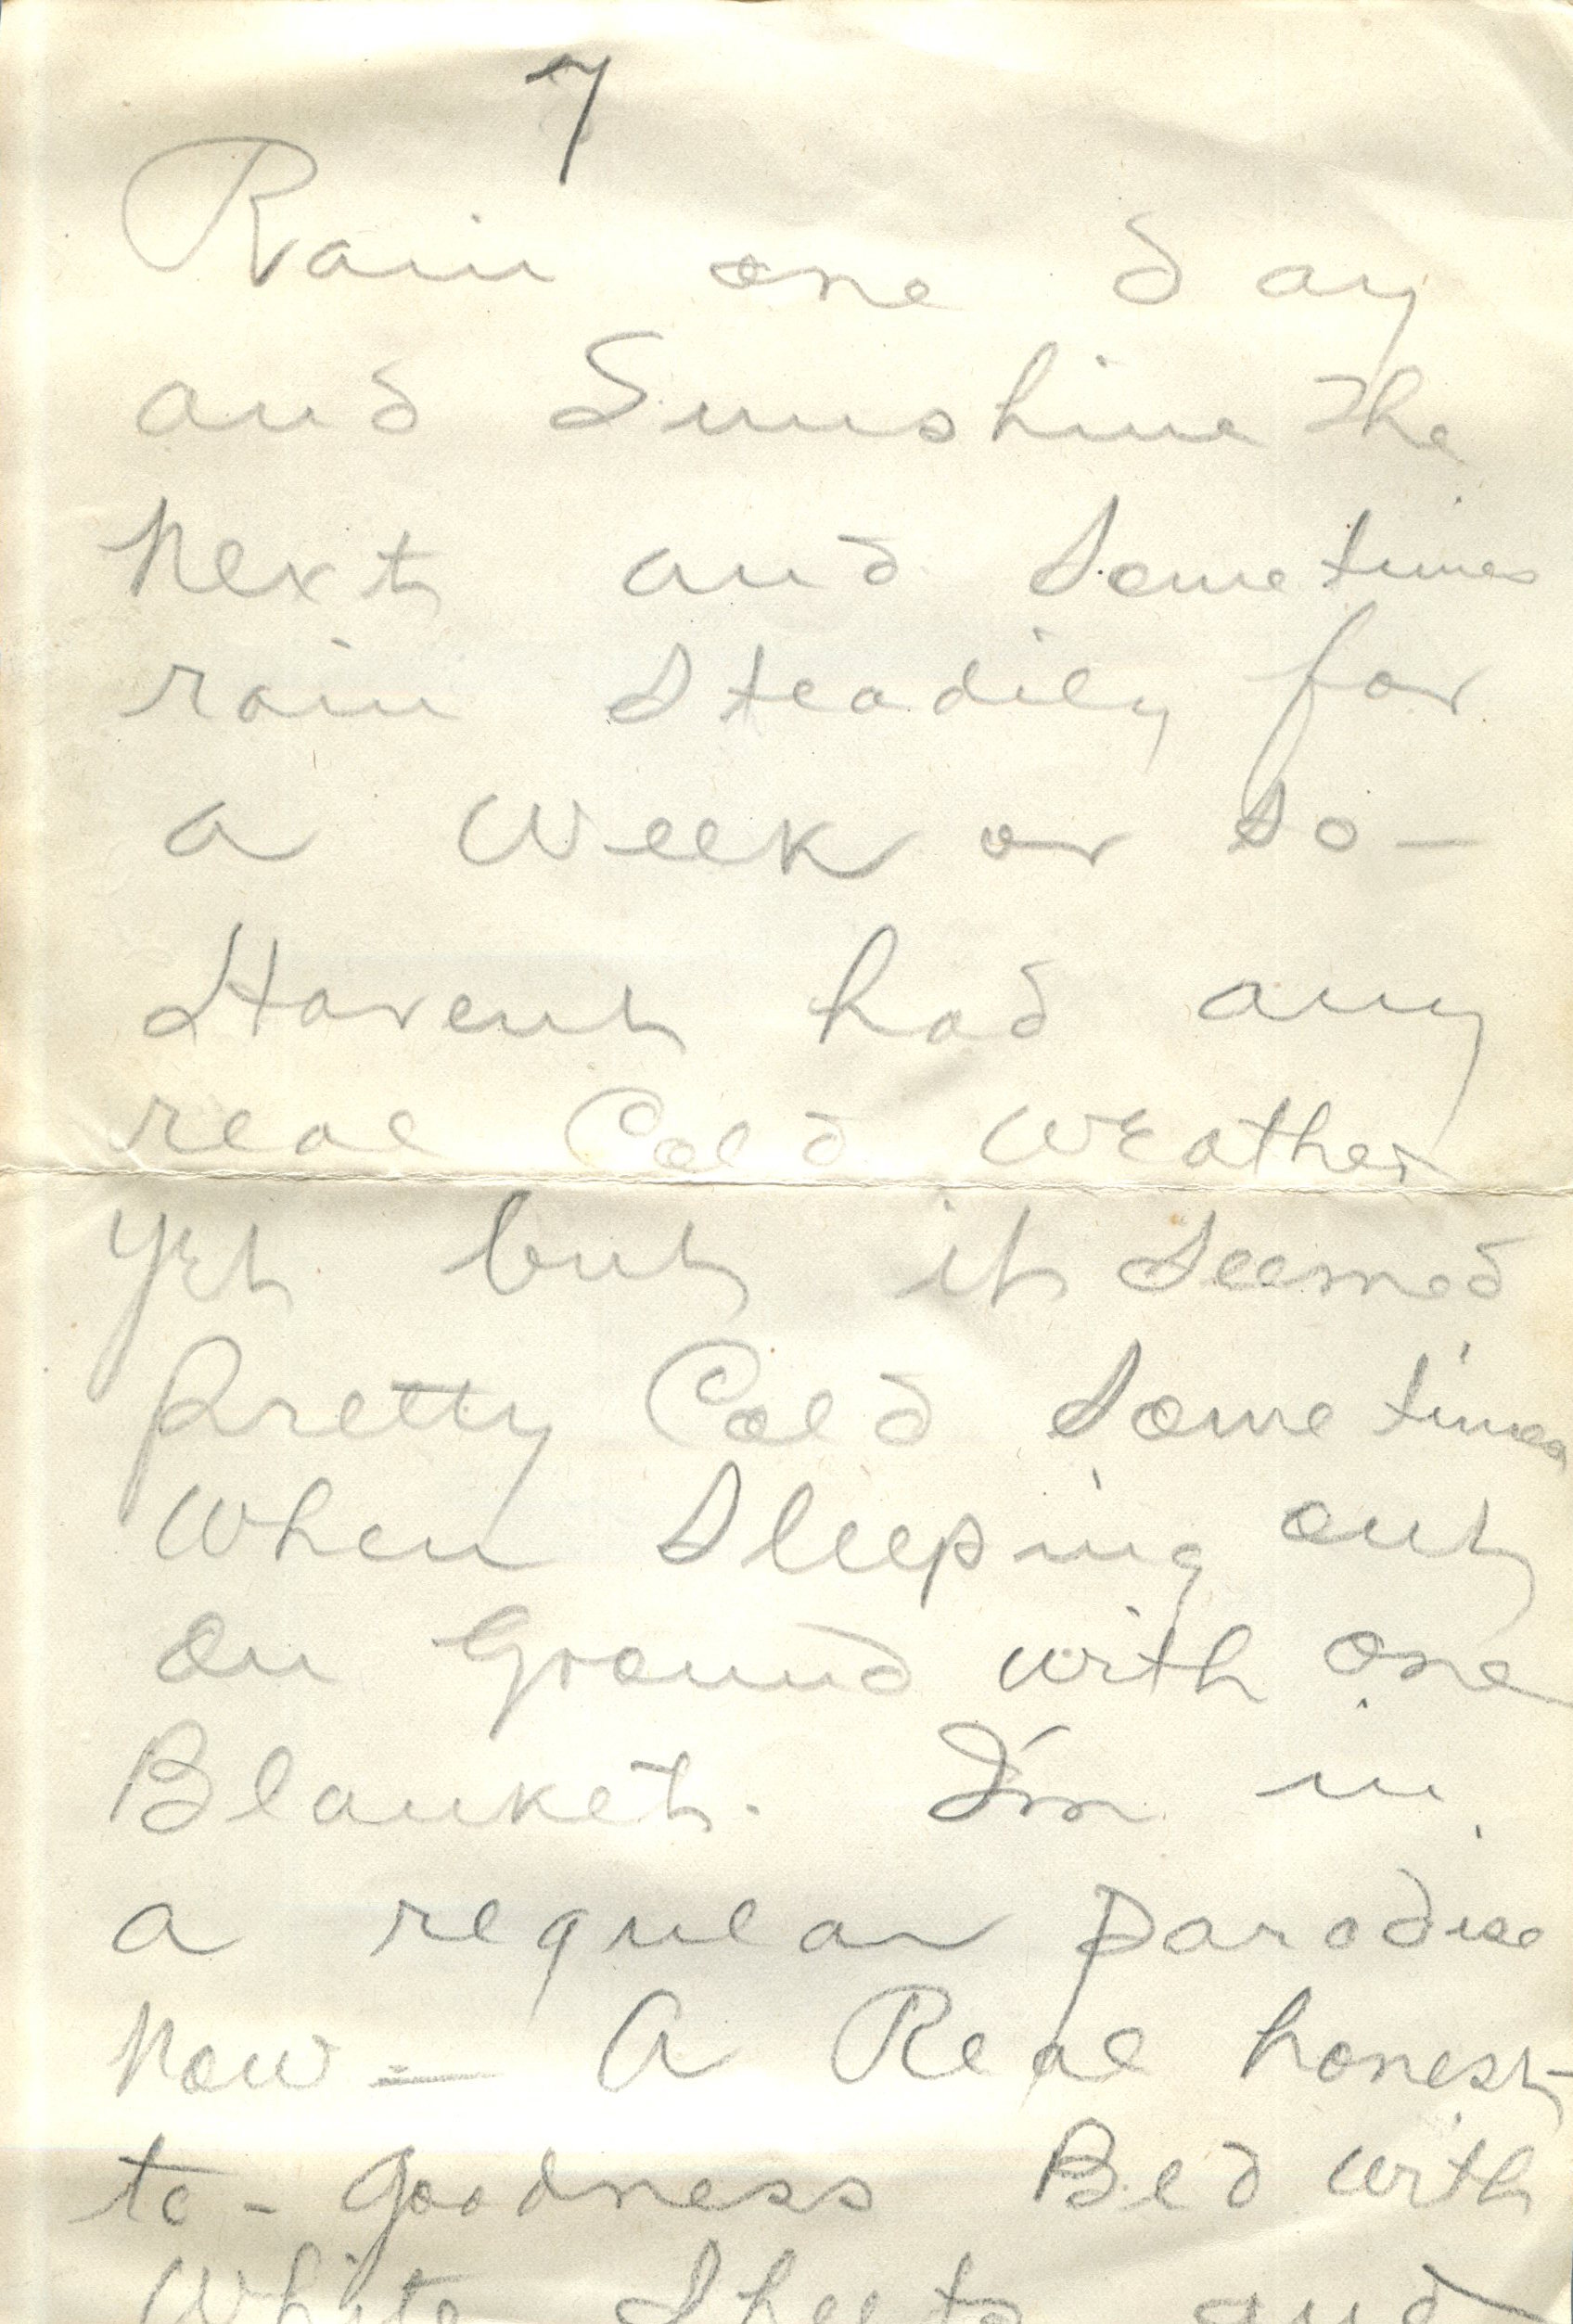 7
Rain one day
and Sunshine the
Next and Sometimes
rain Steadily for
a Week or so—
Havent had any
real Cold Weather
yet but it Seemed
pretty Cold Sometimes
When Sleeping out
on Ground with one
Blanket. I'm in
a regular paradise
Now — A Real honest-
to-goodness Bed with
White Sheets and